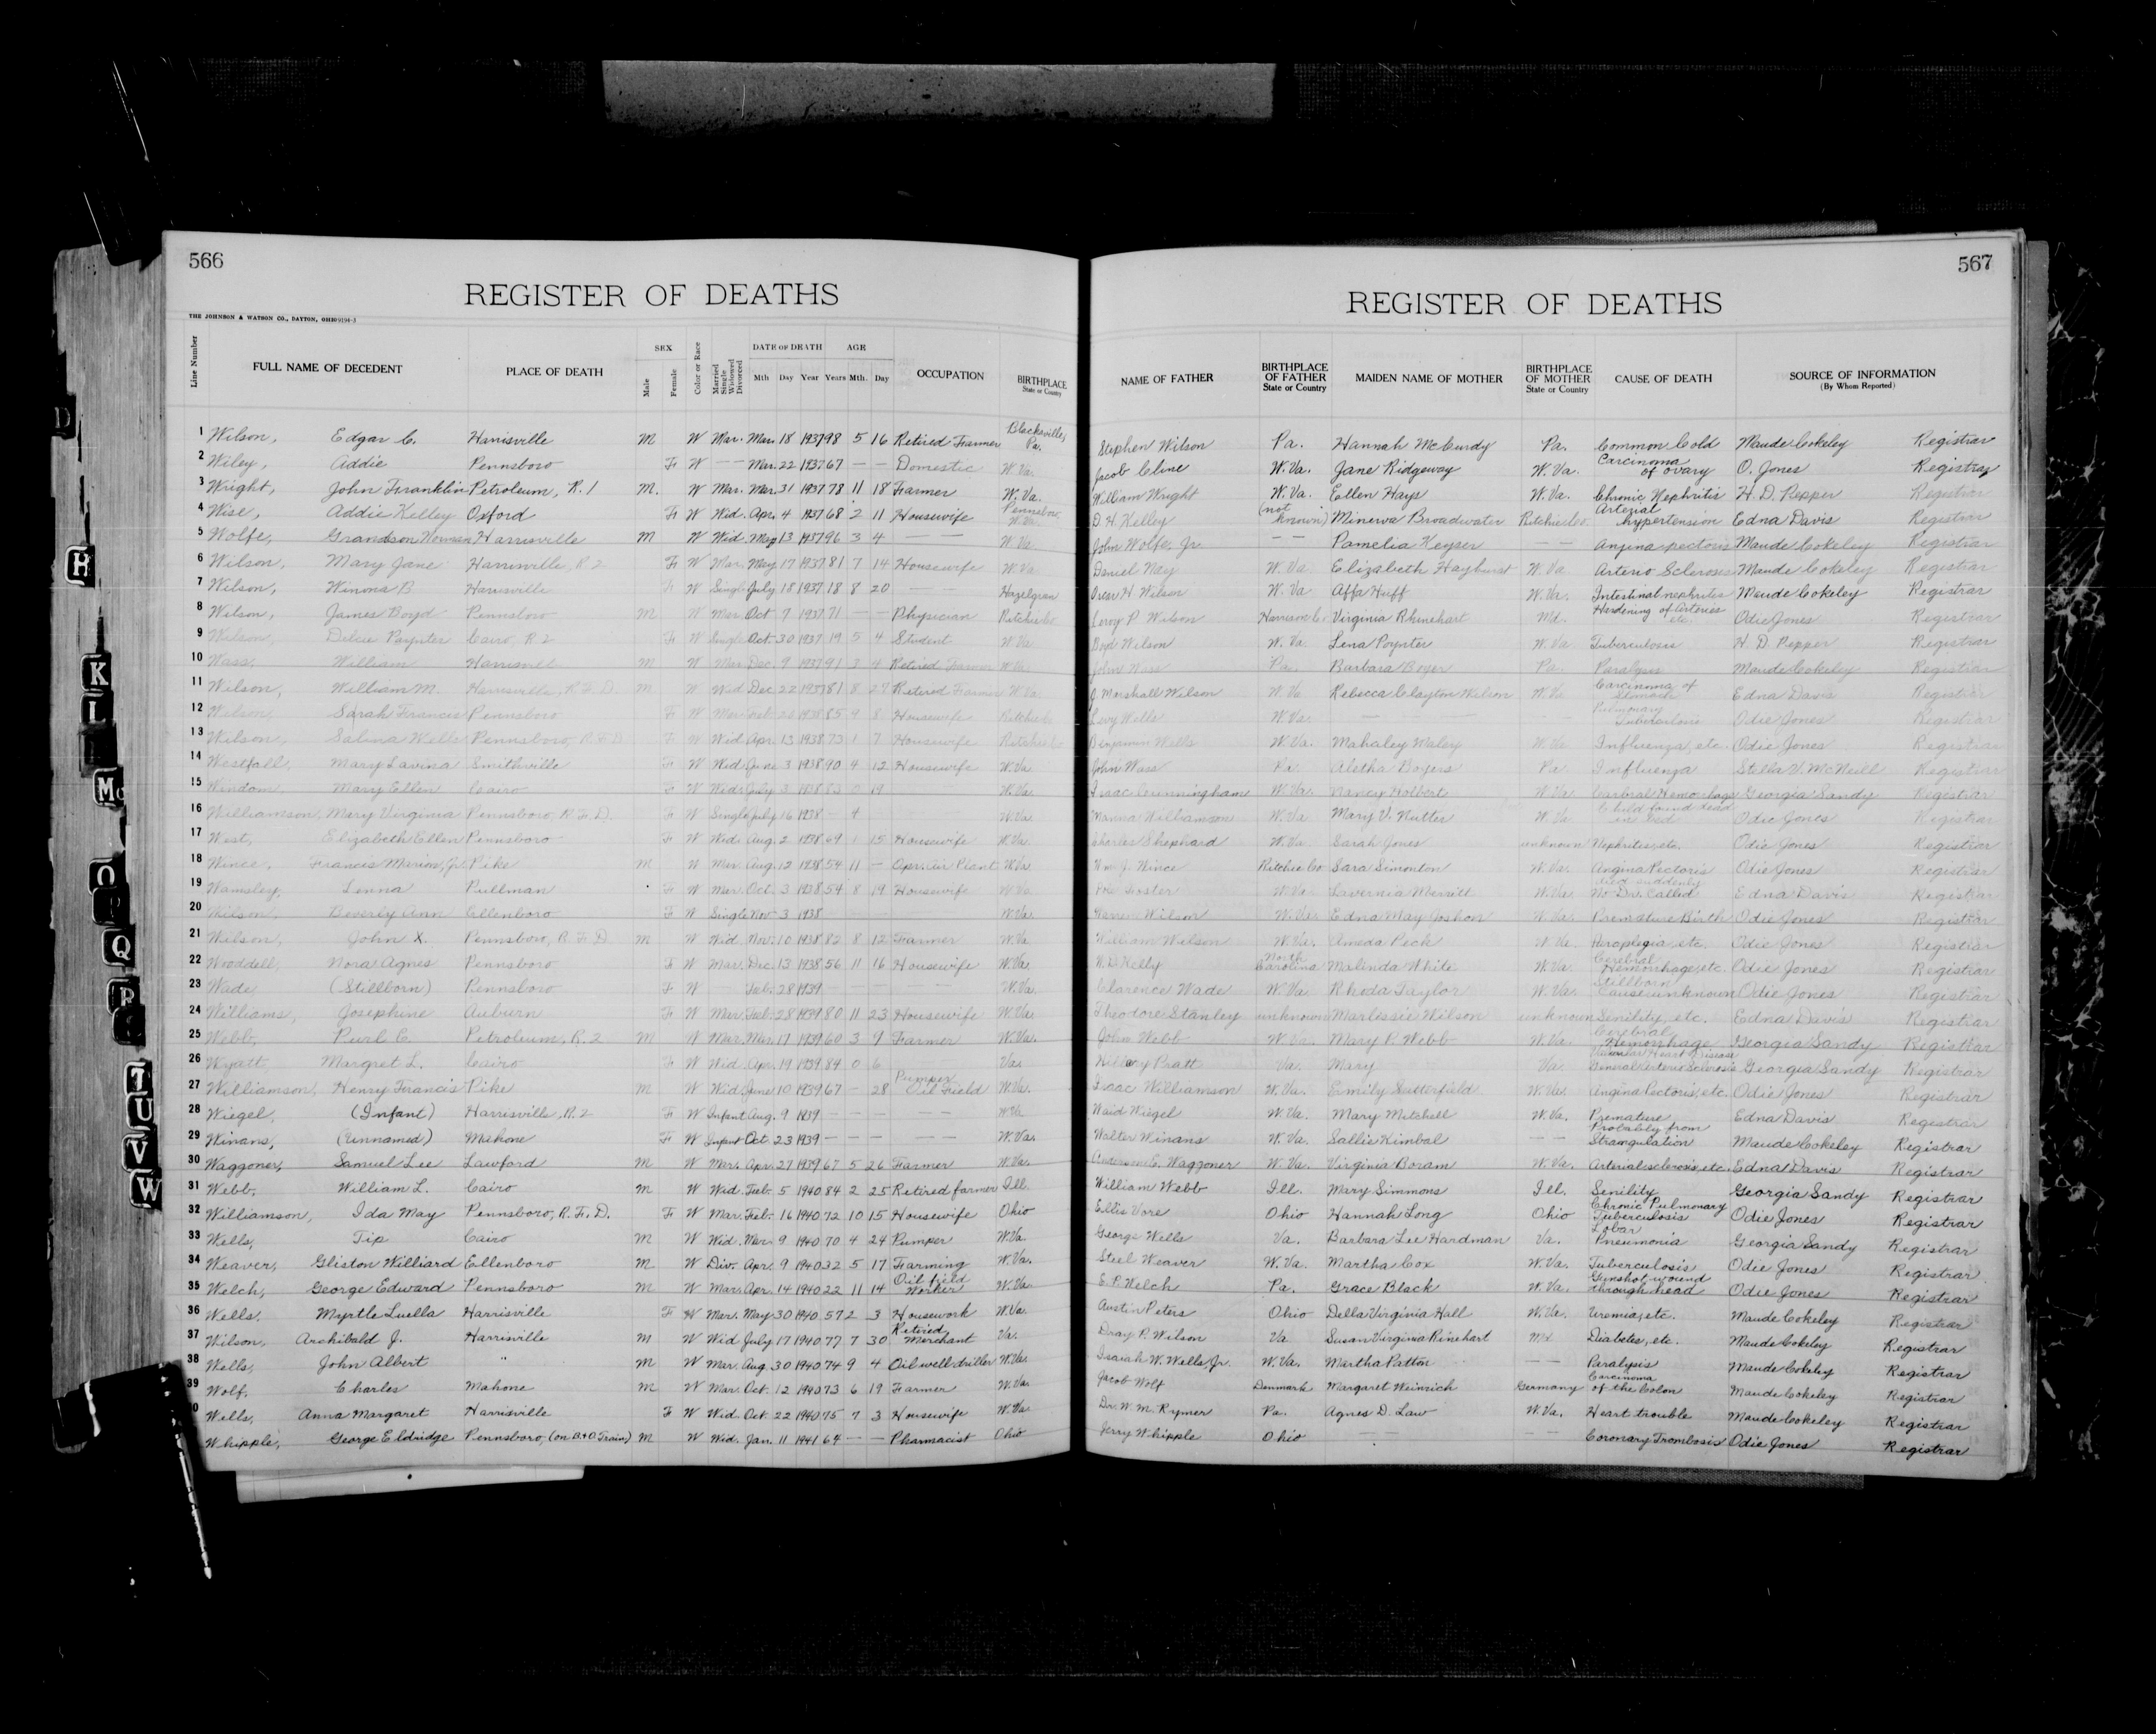 566
REGISTER OF DEATHS
THE JOHNSON & WATSON CO., DAYTON, OHIO 9194-3
Line Number FULL NAME OF DECEDENT PLACE OF DEATH SEX Male Female Color or Race Married Single Widowed Divorced DATE OF DEATH Mth Day Year AGE Years Mth. Day OCCUPATION BIRTHPLACE State or Country
1 Wilson, Edgar C. Harrisville M W Mar. Mar. 18 1937 98 5 16 Retired Farmer Blacksville, Pa.
2 Wiley, Addie Pennsboro F W — — Mar. 22 1937 67 — — Domestic W. Va.
3 Wright, John Franklin Petroleum, R. 1 M. W Mar. Mar. 31 1937 78 11 18 Farmer W. Va.
4 Wise, Addie Kelley Oxford F W Wid. Apr. 4 1937 68 2 11 Housewife Pennsboro W. Va.
5 Wolfe, Grandson Norman Harrisville M W Wid. May 13 1937 96 3 4 — — W. Va.
6 Wilson, Mary Jane Harrisville, R 2 F W Mar. May 17 1937 81 7 14 Housewife W. Va.
7 Wilson, Winona B. Harrisville F W Single July 18 1937 18 8 20 — — Hazelgreen
8 Wilson, James Boyd Pennsboro M W Mar. Oct 7 1937 71 — — Physician Ritchie Co
9 Wilson, Delcie Paynter Cairo, R 2 F W Single Oct. 30 1937 19 5 4 Student W. Va.
10 Wass, William Harrisville M W Mar. Dec. 9 1937 91 3 4 Retired Farmer W. Va.
11 Wilson, William M. Harrisville, R.F.D. M W Wid. Dec. 22 1937 81 8 27 Retired Farmer W. Va.
12 Wilson, Sarah Francis Pennsboro F W Mar. Feb. 26 1938 85 9 8 Housewife Ritchie Co
13 Wilson, Salina Wells Pennsboro, R.F.D F W Wid. Apr. 13 1938 73 1 7 Housewife Ritchie Co
14 Westfall, Mary Lavina Smithville F W Wid. June 3 1938 90 4 12 Housewife W. Va.
15 Windom, Mary Ellen Cairo F W Wid. July 3 1938 83 0 19 W. Va.
16 Williamson, Mary Virginia Pennsboro, R.F.D. F W Single July 16 1938 — 4 W. Va.
17 West, Elizabeth Ellen Pennsboro F W Wid. Aug. 2 1938 69 1 15 Housewife W. Va.
18 Wince, Francis Marion, Jr. Pike M W Mar. Aug. 12 1938 54 11 — Opr. Air Plant W. Va.
19 Wamsley, Lenna Pullman F W Mar. Oct. 3 1938 54 8 19 Housewife W. Va.
20 Wilson, Beverly Ann Ellenboro F W Single Nov. 3 1938 — — — — W. Va.
21 Wilson, John X. Pennsboro, R.F.D. M W Wid. Nov. 10 1938 82 8 12 Farmer W. Va.
22 Wooddell, Nora Agnes Pennsboro F W Mar. Dec. 13 1938 56 11 16 Housewife W. Va.
23 Wade, (Stillborn) Pennsboro F W — Feb. 28 1939 — — — — — W. Va.
24 Williams, Josephine Auburn F W Mar. Feb. 28 1939 80 11 23 Housewife W. Va.
25 Webb, Purl C. Petroleum, R. 2 M W Mar. Mar. 17 1939 60 3 9 Farmer W. Va.
26 Wyatt, Margret L. Cairo F W Wid. Apr. 19 1939 84 0 6 Va.
27 Williamson, Henry Francis Pike M W Wid. June 10 1939 67 — 28 Pumper Oil Field W. Va.
28 Wiegel, (Infant) Harrisville, R. 2 F W Infant Aug. 9 1939 — — — — — W. Va.
29 Winans, (Unnamed) Mahone F W Infant Oct. 23 1939 — — — — — W. Va.
30 Waggoner, Samuel Lee Lawford M W Mar. Apr. 27 1939 67 5 26 Farmer W. Va.
31 Webb, William L. Cairo M W Wid. Feb. 5 1940 84 2 25 Retired farmer Ill.
32 Williamson, Ida May Pennsboro, R.F.D. F W Mar. Feb. 16 1940 72 10 15 Housewife Ohio
33 Wells, Tip Cairo M W Wid. Mar. 9 1940 70 4 24 Pumper W. Va.
34 Weaver, Gliston Williard Ellenboro M W Div. Apr. 9 1940 32 5 17 Farming W. Va.
35 Welch, George Edward Pennsboro M W Mar. Apr. 14 1940 22 11 14 Oil field Worker W. Va.
36 Wells, Myrtle Luella Harrisville F W Mar. May 30 1940 57 2 3 Housework W. Va.
37 Wilson, Archibald J. Harrisville M W Wid July 17 1940 77 7 30 Retired Merchant Va.
38 Wells, John Albert " M W Mar. Aug. 30 1940 74 9 4 Oil well driller W. Va.
39 Wolf, Charles Mahone M W Mar. Oct. 12 1940 73 6 19 Farmer W. Va.
0 Wells, Anna Margaret Harrisville F W Wid. Oct. 22 1940 75 7 3 Housewife W. Va.
Whipple, George Eldridge Pennsboro, (on B. & O Train) M W Wid. Jan. 11 1941 64 — — Pharmacist Ohio
567
REGISTER OF DEATHS
NAME OF FATHER BIRTHPLACE OF FATHER State or Country MAIDEN NAME OF MOTHER BIRTHPLACE OF MOTHER State or Country CAUSE OF DEATH SOURCE OF INFORMATION (By Whom Reported)
Stephen Wilson Pa. Hannah McCurdy Pa. Common Cold Maude Cokeley Registrar
Jacob Cline W. Va. Jane Ridgeway W. Va. Carcinoma of ovary O. Jones Registrar
William Wright W. Va. Ellen Hays W. Va. Chronic Nephritis H. D. Pepper Registrar
D. H. Kelley (not known) Minerva Broadwater Ritchie Co. Arterial hypertension Edna Davis Registrar
John Wolfe, Jr. — — Pamelia Keyser — — Angina pectoris Maude Cokeley Registrar
Daniel May W. Va. Elizabeth Hayhurst W. Va. Arterio Sclerosis Maude Cokeley Registrar
Isear H. Wilson W. Va Affa Huff W. Va. Intestinal nephritis Maude Cokeley Registrar
Leroy P. Wilson Harrison Co. Virginia Rhinehart Md. Hardening of arteries etc. Odie Jones Registrar
Boyd Wilson W. Va. Lena Poynter W. Va Tuberculosis H. D. Pepper Registrar
John Wass Pa. Barbara Boyer Pa. Paralysis Maude Cokeley Registrar
J. Marshall Wilson W. Va Rebecca Clayton Wilson W. Va Carcinoma of Stomach Edna Davis Registrar
Levy Wells W. Va. — — — — Pulmonary Tuberculosis Odie Jones Registrar
Benjamin Wells W. Va. Mahaley Waley W. Va Influenza, etc. Odie Jones Registrar
John Wass Pa. Aletha Boyers Pa. Influenza Stella V. McNeill Registrar
Isaac Cunningham W. Va. Nancy Holbert W. Va Cerbral Hemorhage Georgia Sandy Registrar
Manna Williamson W. Va. Mary V. Nutter W. Va. Child found dead in bed Odie Jones Registrar
Charles Shephard W. Va. Sarah Jones unknown Nephrites, etc. Odie Jones Registrar
Wm. J. Wince Ritchie Co. Sara Simonton W. Va. Angina Pectoris Odie Jones Registrar
Poe Foster W. Va. Lavernia Merritt W. Va. died suddenly No Dr. Called Edna Davis Registrar
Warren Wilson W. Va. Edna May Joshon W. Va. Premature Birth Odie Jones Registrar
William Wilson W. Va. Ameda Peck W. Va. etc. Odie Jones Registrar
W. D. Kelly North Carolina Malinda White W. Va. Cerebral Hemorrhage, etc. Odie Jones Registrar
Clarence Wade W. Va. Rheda Taylor W. Va. Stillborn Cause unknown Odie Jones Registrar
Theodore Stanley unknown Marlissie Wilson unknown Senility, etc. Edna Davis Registrar
John Webb W. Va. Mary P. Webb W. Va. Cerebral Hemorrhage Georgia Sandy Registrar
Hillery Pratt Va. Mary Va. Valvular Heart Disease General Arterio Sclerosis Georgia Sandy Registrar
Isaac Williamson W. Va. Emily Sutterfield W. Va. Angina Pectoris, etc. Odie Jones Registrar
Waid Wiegel W. Va. Mary Mitchell W. Va. Premature Edna Davis Registrar
Walter Winans W. Va. Sallie Kimbal — — Probably from Strangulation Maude Cokeley Registrar
Anderson E. Waggoner W. Va. Virginia Boram W. Va. Arterial sclerosis, etc. Edna Davis Registrar
William Webb Ill. Mary Simmons Ill. Senility Georgia Sandy Registrar
Ellis Vore Ohio Hannah Long Ohio Chronic Pulmonary Tuberculosis Odie Jones Registrar
George Wells Va. Barbara Lee Hardman Va. Lobar Pneumonia Georgia Sandy Registrar
Steel Weaver W. Va. Martha Cox W. Va. Tuberculosis Odie Jones Registrar
E. P. Welch Pa. Grace Black W. Va. Gunshot wound through head Odie Jones Registrar
Austin Peters Ohio Della Virginia Hall W. Va. Uremia, etc. Maude Cokeley Registrar
Dray P. Wilson Va Susan Virginia Rinehart Md Diabetes, etc. Maude Cokeley Registrar
Isaiah W. Wells, Jr. W. Va. Martha Patton — — Paralysis Maude Cokeley Registrar
Jacob Wolf Denmark Margaret Weinrich Germany Carcinoma of the Colon Maude Cokeley Registrar
Dr. W. M. Rymer Pa. Agnes D. Law W. Va. Heart trouble Maude Cokeley Registrar
Jerry Whipple Ohio — — — — Coronary Trombosis Odie Jones Registrar